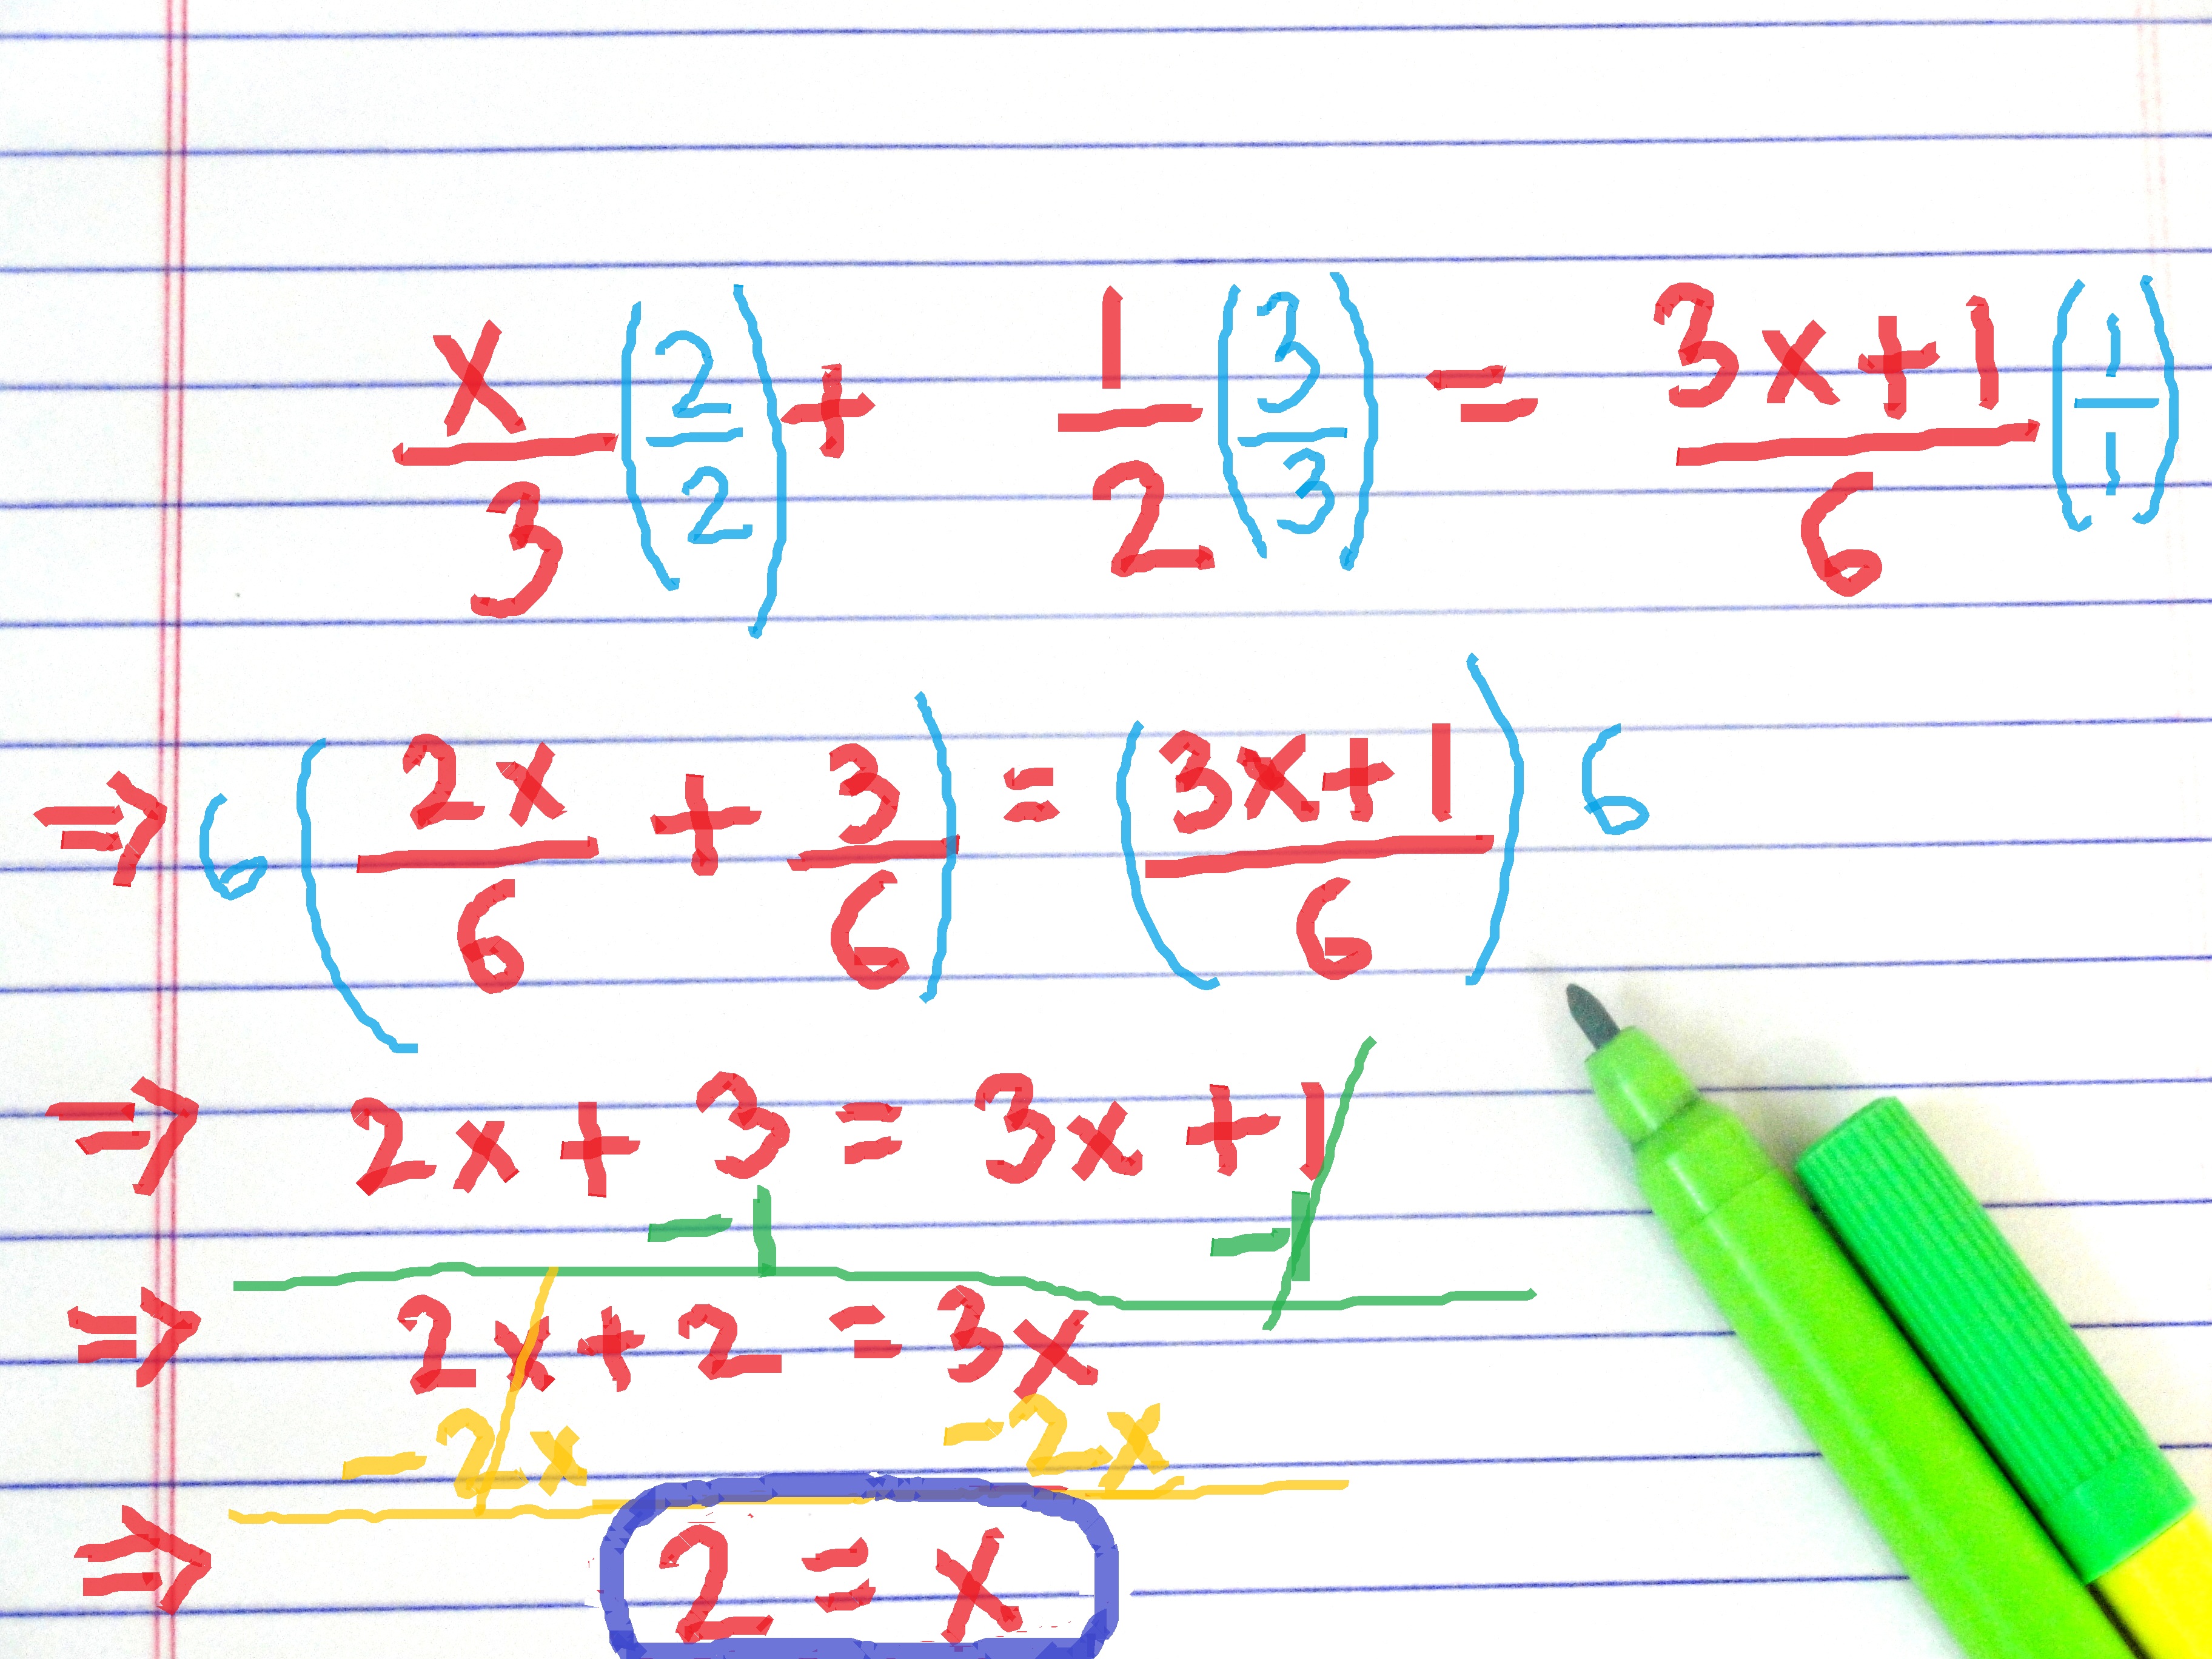 x/3 (2/2) + 1/2 (3/3) = 3x+1/6 (1/1)
⇒ 6 (2x/6 + 3/6) = (3x+1/6) 6
⇒ 2x + 3 = 3x + 1
-1 -1
⇒ 2x + 2 = 3x
-2x -2x
⇒ 2 = x